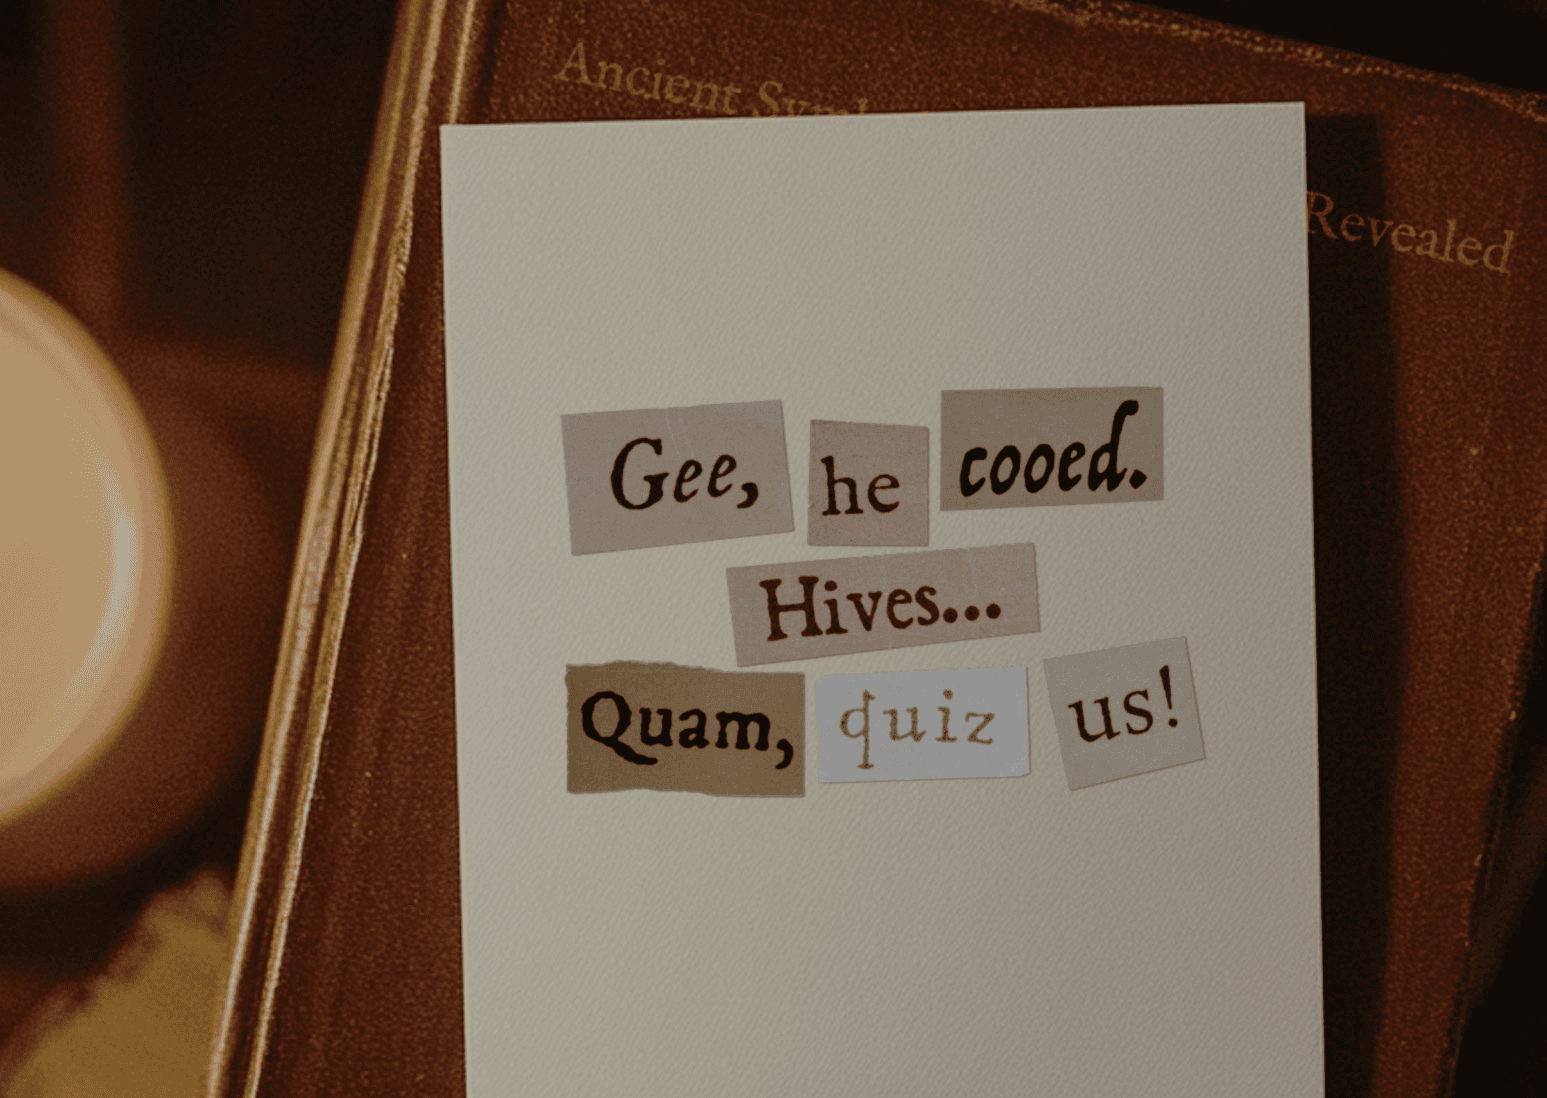 Ancient
Revealed
Gee, he cooed.
Hives...
Quam, quiz us!